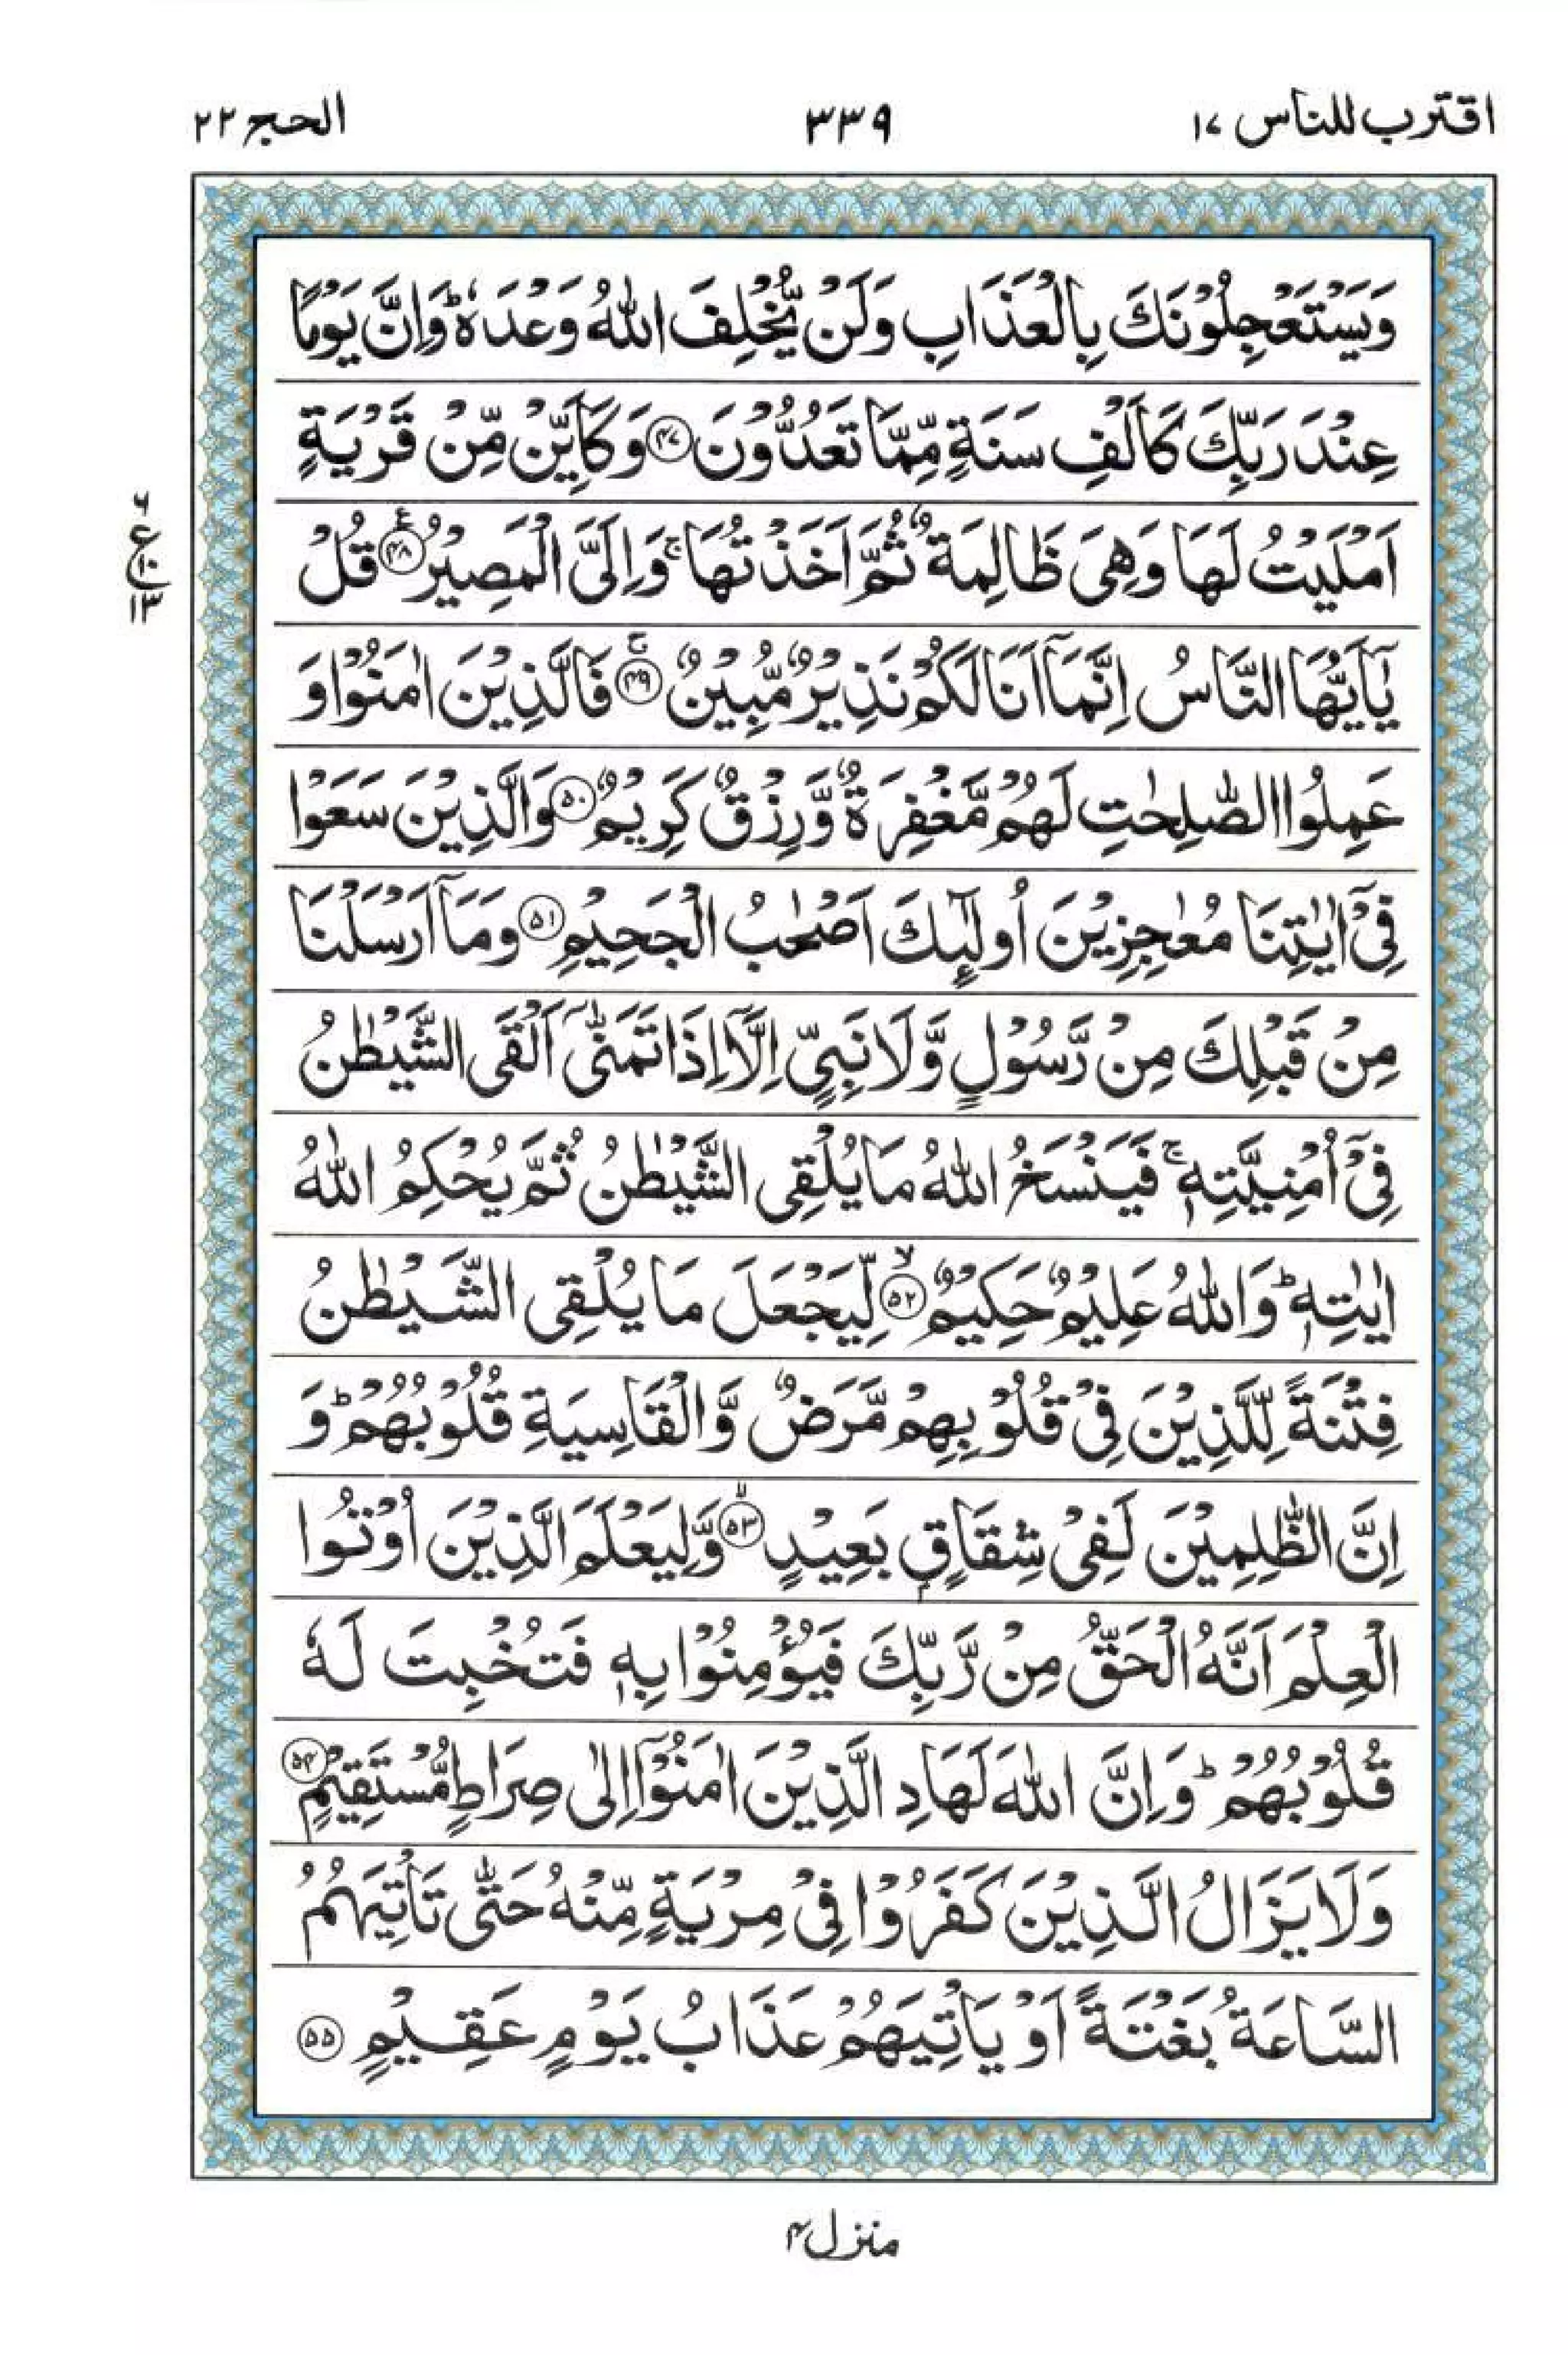 اقترب للناس ۱۷
۳۳۹
الحج ۲۲
وَيَسْتَعْجِلُوْنَكَ بِالْعَذَابِ وَلَنْ يُّخْلِفَ اللّٰهُ وَعْدَهٗ ؕ وَاِنَّ يَوْمًا
عِنْدَ رَبِّكَ كَاَلْفِ سَنَةٍ مِّمَّا تَعُدُّوْنَ ۴۷ وَكَاَيِّنْ مِّنْ قَرْيَةٍ
اَمْلَيْتُ لَهَا وَهِىَ ظَالِمَةٌ ثُمَّ اَخَذْتُهَا ۚ وَاِلَىَّ الْمَصِيْرُ ۴۸ قُلْ
يٰٓاَيُّهَا النَّاسُ اِنَّمَآ اَنَا لَكُمْ نَذِيْرٌ مُّبِيْنٌ ۴۹ فَالَّذِيْنَ اٰمَنُوْا وَ
عَمِلُوا الصّٰلِحٰتِ لَهُمْ مَّغْفِرَةٌ وَّرِزْقٌ كَرِيْمٌ ۵۰ وَالَّذِيْنَ سَعَوْا
فِىْٓ اٰيٰتِنَا مُعٰجِزِيْنَ اُولٰٓئِكَ اَصْحٰبُ الْجَحِيْمِ ۵۱ وَمَآ اَرْسَلْنَا
مِنْ قَبْلِكَ مِنْ رَّسُوْلٍ وَّلَا نَبِىٍّ اِلَّآ اِذَا تَمَنّٰٓى اَلْقَى الشَّيْطٰنُ
فِىْٓ اُمْنِيَّتِهٖ ۚ فَيَنْسَخُ اللّٰهُ مَا يُلْقِى الشَّيْطٰنُ ثُمَّ يُحْكِمُ اللّٰهُ
اٰيٰتِهٖ ؕ وَاللّٰهُ عَلِيْمٌ حَكِيْمٌ ۵۲ لِّيَجْعَلَ مَا يُلْقِى الشَّيْطٰنُ
فِتْنَةً لِّلَّذِيْنَ فِىْ قُلُوْبِهِمْ مَّرَضٌ وَّالْقَاسِيَةِ قُلُوْبُهُمْ ؕ وَ
اِنَّ الظّٰلِمِيْنَ لَفِىْ شِقَاقٍۭ بَعِيْدٍ ۵۳ وَّلِيَعْلَمَ الَّذِيْنَ اُوْتُوا
الْعِلْمَ اَنَّهُ الْحَقُّ مِنْ رَّبِّكَ فَيُؤْمِنُوْا بِهٖ فَتُخْبِتَ لَهٗ
قُلُوْبُهُمْ ؕ وَاِنَّ اللّٰهَ لَهَادِ الَّذِيْنَ اٰمَنُوْٓا اِلٰى صِرَاطٍ مُّسْتَقِيْمٍ ۵۴
وَلَا يَزَالُ الَّذِيْنَ كَفَرُوْا فِىْ مِرْيَةٍ مِّنْهُ حَتّٰى تَاْتِيَهُمُ
السَّاعَةُ بَغْتَةً اَوْ يَاْتِيَهُمْ عَذَابُ يَوْمٍ عَقِيْمٍ ۵۵
۶
ع
۱۰
۱۳
منزل ۴